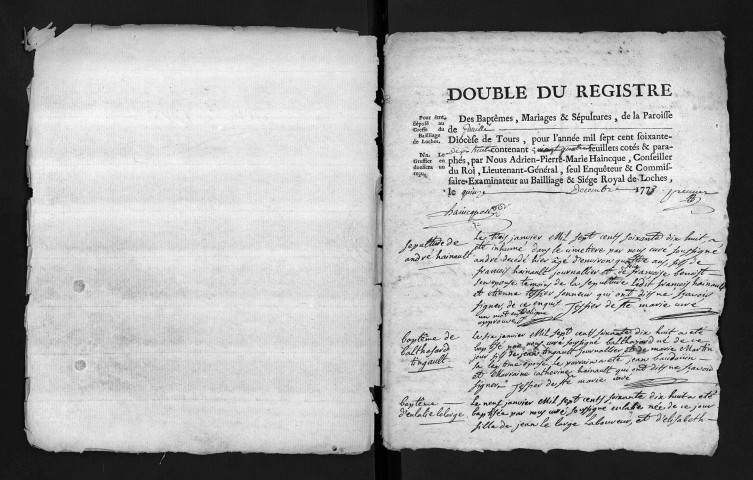 DOUBLE DU REGISTRE
Pour être
déposé au
Greffe du
Bailliage
de Loches.
Na. Le
Greffier en
donnera un
reçu.
Des Baptêmes, Mariages & Sépultures, de la Paroisse
de
Diocèse de Tours, pour l'année mil sept cent soixante-
dix huit contenant vingt quatre feuillets cotés & para-
phés, par Nous Adrien-Pierre-Marie Haincque, Conseiller
du Roi, Lieutenant-Général, seul Enquêteur & Commis-
saire-Examinateur au Bailliage & Siége Royal de Loches,
le quinze Decembre 177 premier
haincque
sepulture de
andré hainault
le trois janvier Mil sept cents soixante dix huit a
été inhumé dans le cimettiere par nous curé soussigné
andré decedé hier âgé d'environ quatre ans fils de
francois hainault journallier et de françoise benoist
son epouse temoins de la sepulture ledit francois hainault
et etienne tessier sonneur qui ont dit ne scavoir
signer de ce enquis Tessier de Ste marie curé
un mot
approuvé
baptême de
balthasard
tingault
le six janvier Mil sept cents soixante dix huit a été
baptisé par nous curé soussigné balthazard né de ce
jour fils de jean tingault journallier et de marie Martin
sa legitime epouse le parrain a été jean baudichon
et Marraine catherine hainault qui ont dit ne scavoir
signer Tessier de Ste marie curé
baptême
d'eulalie lelarge
le neuf janvier Mil sept cents soixante dix huit a été
baptisée par nous curé soussigné eulalie née de ce jour
fille de jean le large Laboureur, et d'elisabeth